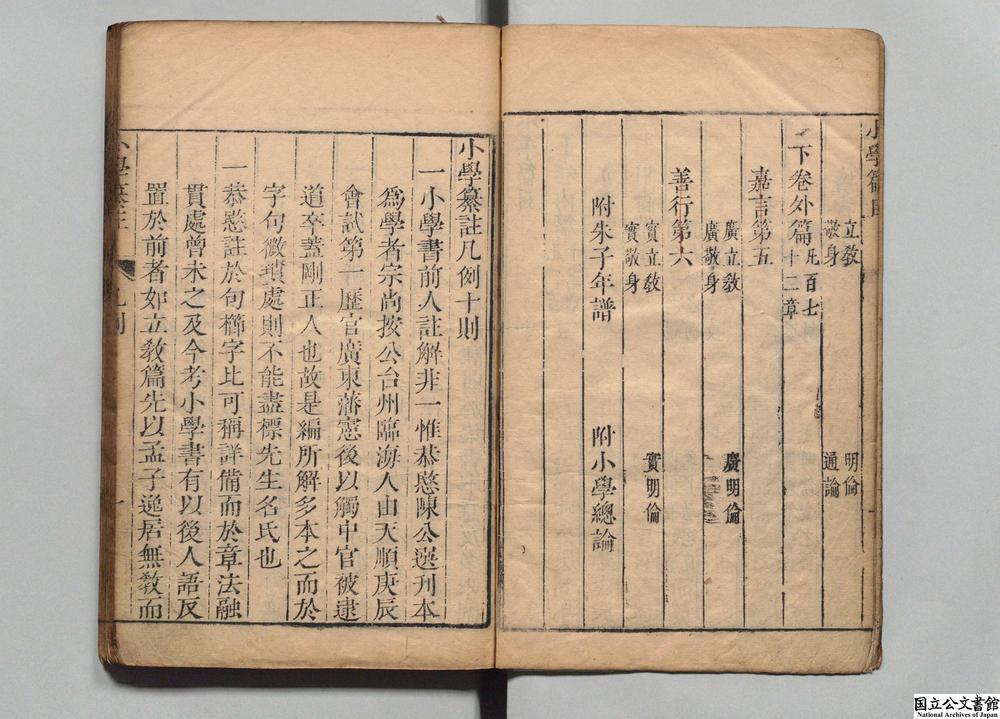 小學篇目
立敎
明倫
敬身
通論
下卷外篇
凡百七
十二章
嘉言第五
廣立敎
廣明倫
廣敬身
善行第六
實立敎
實明倫
實敬身
附朱子年譜
附小學總論
小學纂註凡例十則
一小學書前人註解非一惟恭愍陳公選刊本
爲學者宗尚按公台州臨海人由天順庚辰
會試第一歷官廣東藩憲後以觸中官被逮
道卒蓋剛正人也故是編所解多本之而於
字句微瑣處則不能盡標先生名氏也
一恭愍註於句櫛字比可稱詳備而於章法融
貫處曾未之及今考小學書有以後人語反
置於前者如立敎篇先以孟子逸居無敎而
小學纂註
凡例
一
国立公文書館
National Archives of Japan